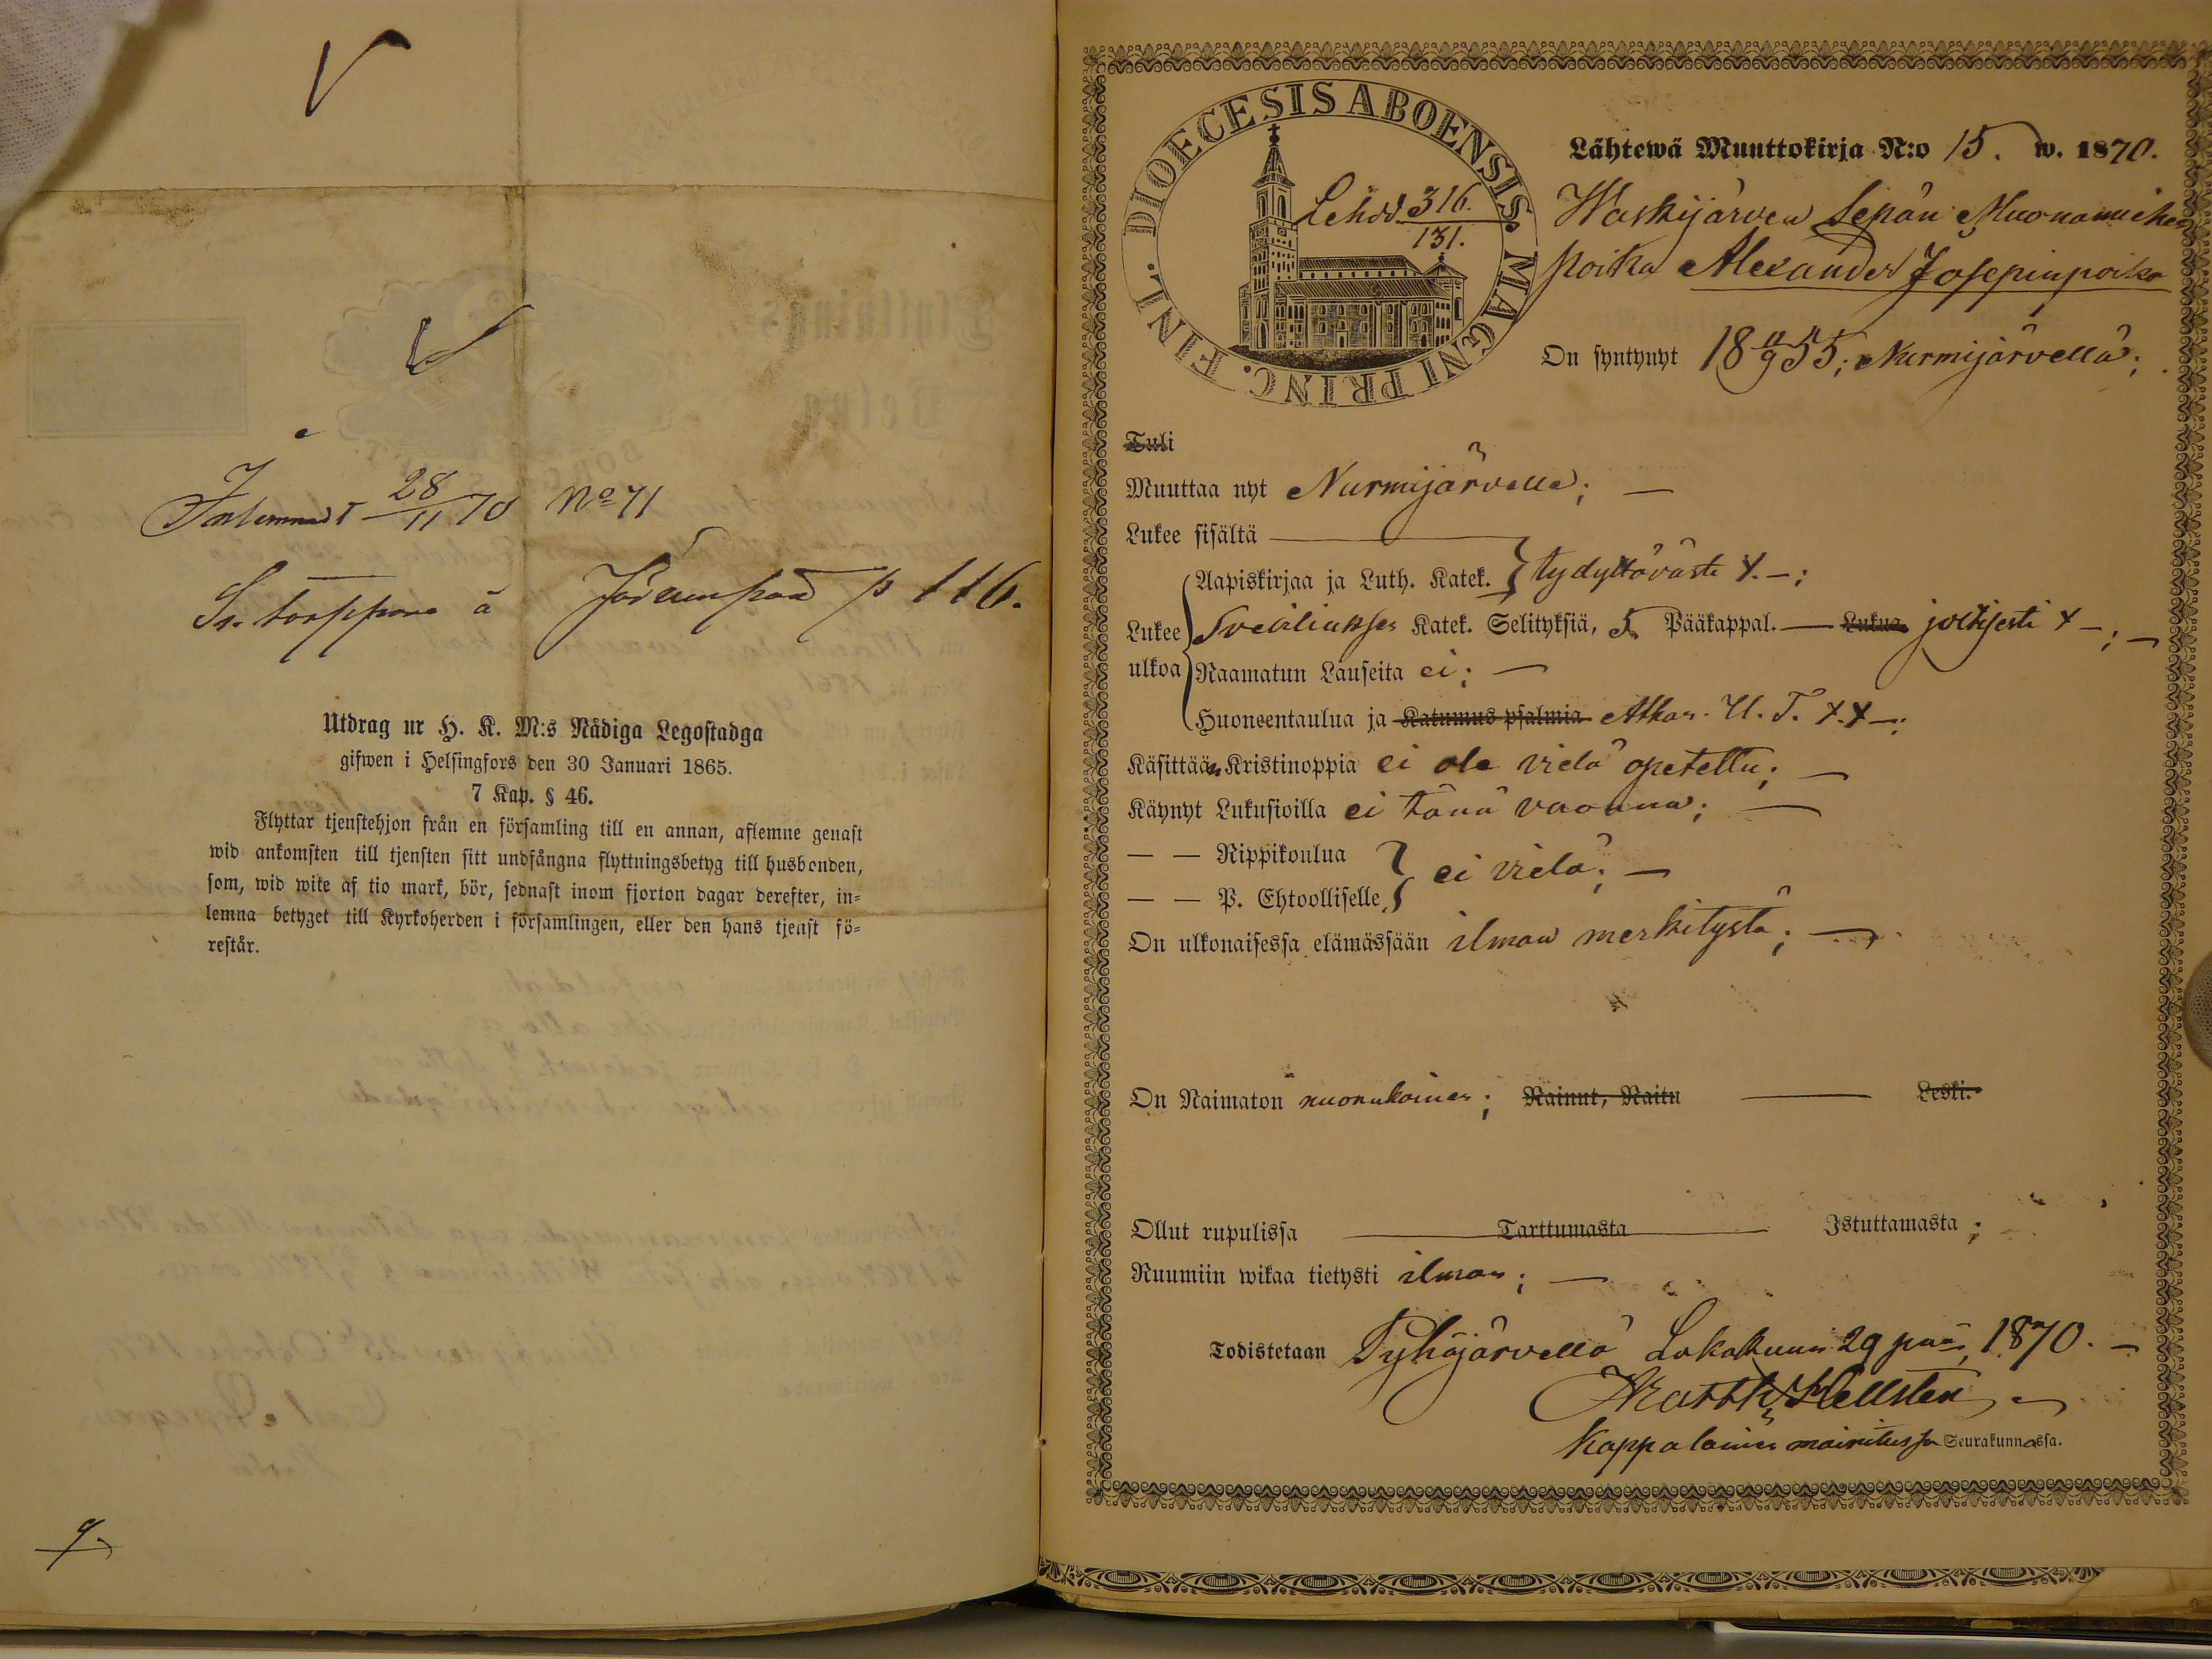 Inlemnadt 28/11 70 No 71
Sn. torppare å p 116.
Utdrag ur H. K. M:s Nådiga Legostadga
gifwen i Helsingfors den 30 Januari 1865.
7 Kap. § 46.
Flyttar tjenstehjon från en församling till en annan, aflemne genast
wid ankomsten till tjensten sitt undfångna flyttningsbetyg till husbonden,
som, wid wite af tio mark, bör, sednast inom fjorton dagar derefter, in-
lemna betyget till Kyrkoherden i församlingen, eller den hans tjenst fö-
restår.
DIOECESIS ABOENSIS. MAGNI PRINC. FINL.
Lehdd. 316.
131.
Lähtewä Muuttokirja N:o 15. w. 1870.
Waskijärven Sepän Muonamiehen
poika Alexander Josepinpoika
On syntynyt 18 11/9 55; Nurmijärvellä;
Tuli
Muuttaa nyt Nurmijärvelle; —
Lukee sisältä —
Aapiskirjaa ja Luth. Katek. tydyttäväste x. —;
Lukee ulkoa
Sveiliukses Katek. Selityksiä, 5 Pääkappal. — Lukua jotkjesti x —; —
Raamatun Lauseita ei; —
Huoneentaulua ja Katumus psalmia Athan. U. T. x.x —;
Käsittään Kristinoppia ei ole vielä opetettu; —
Käynyt Lukusioilla ei tänä vuonna; —
— — Rippikoulua
ei vielä; —
— — P. Ehtoolliselle
On ulkonaisessa elämässään ilman merkitystä; —
On Naimaton nuorukainen; Nainut, Naitu — Leski.
Ollut rupulissa — Tarttumasta — Istuttamasta;
Ruumiin wikaa tietysti ilman; —
Todistetaan Pyhäjärvellä Lokakuun 29 päiv, 1870. —
Matth. Hellsten
Kappalainen mainitussa Seurakunnassa.